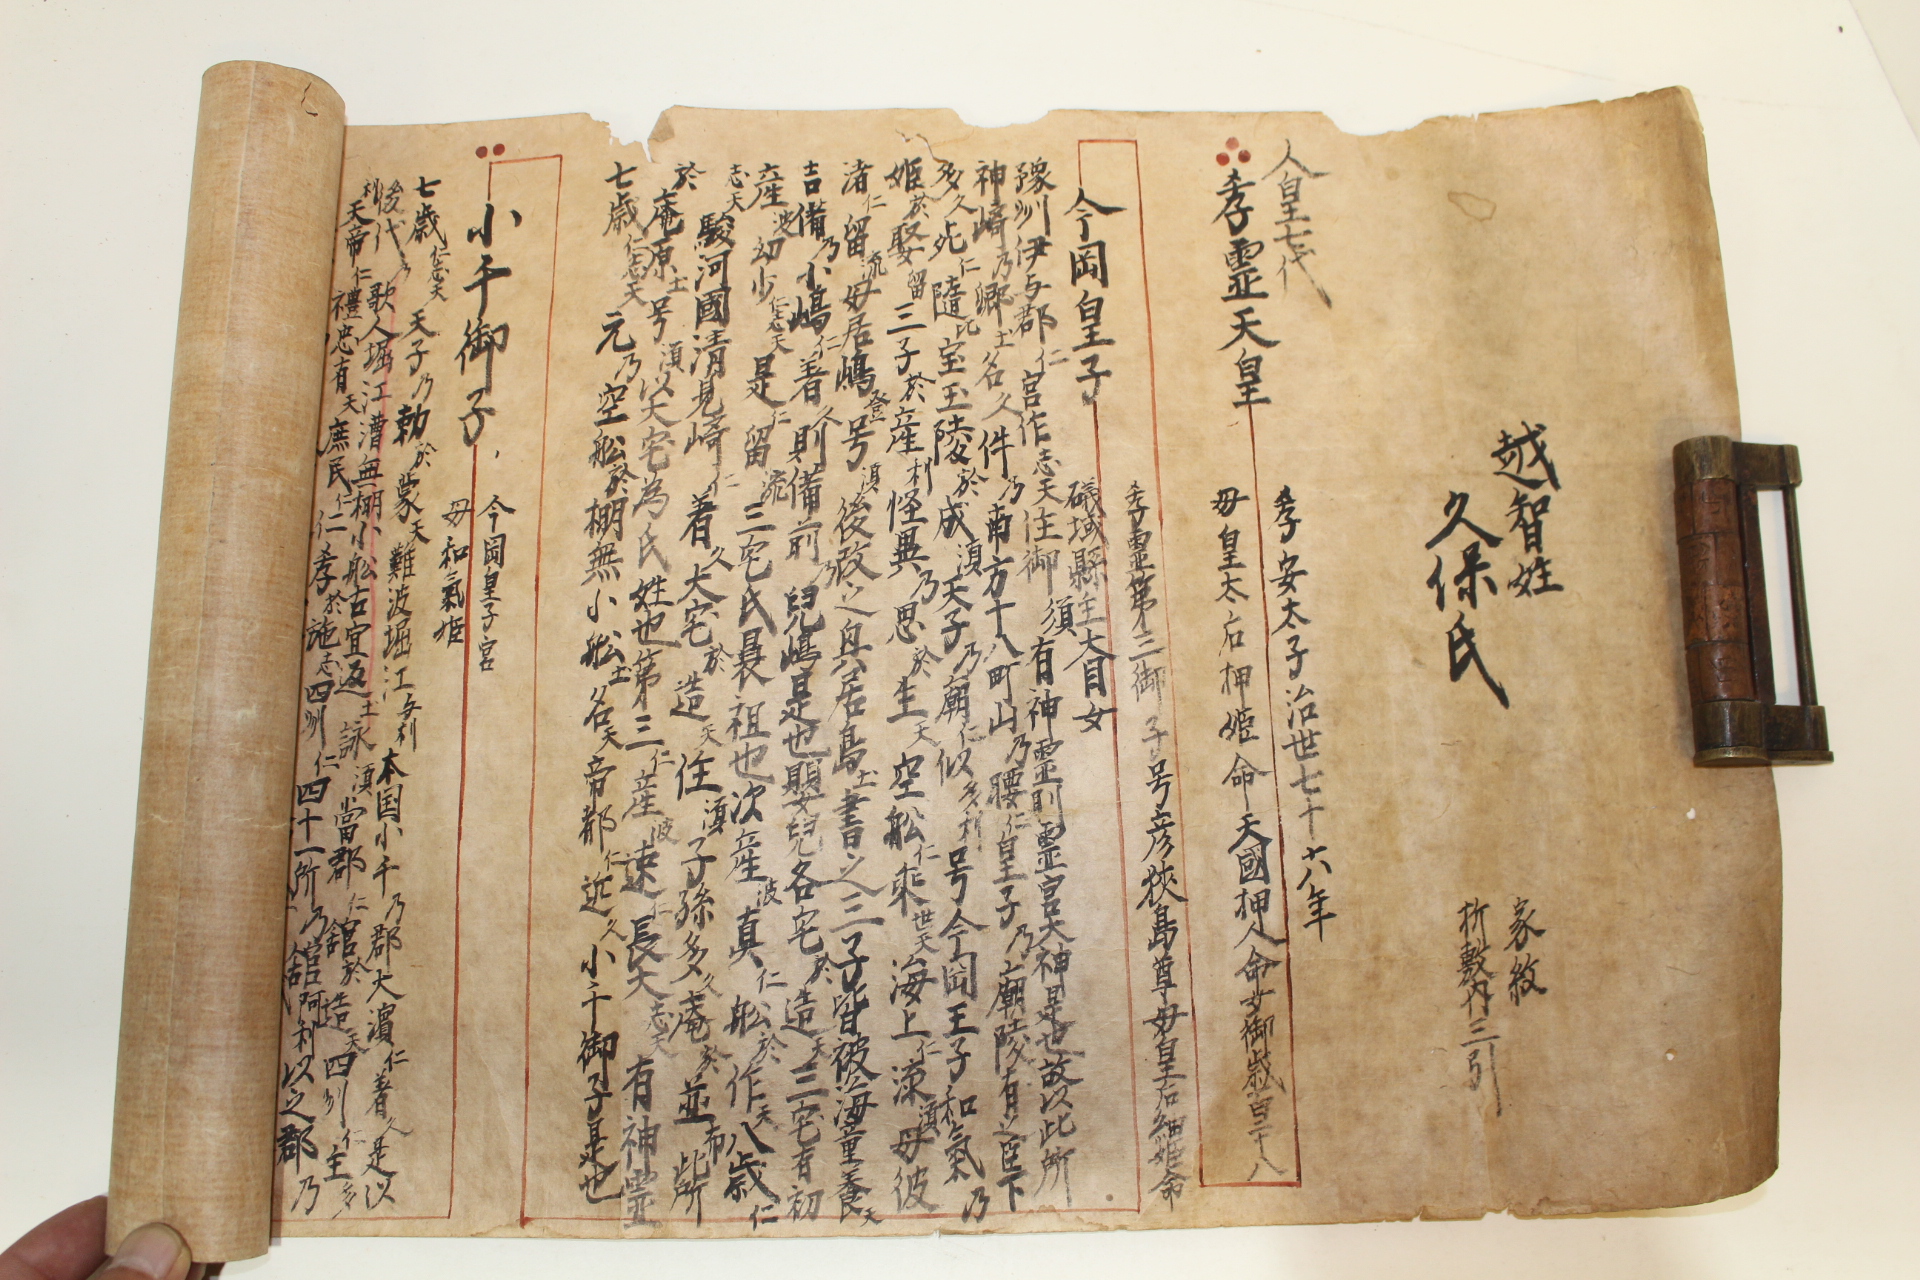 越智姓
久保氏
家紋
折敷内三引
人皇七代
孝霊天皇
孝安太子治世七十六年
母皇太后押姫命天國押人命女御歳百二十八
今岡皇子
孝霊第三御子号彦狹島尊母皇后細姫命
礒城縣主大目女
豫州伊与郡仁宮作志天住御須有神霊則霊宮大神是也故以此所
神﨑乃郷士名久件乃南方十八町山乃腰仁皇子乃廟陵有之臣下
多久死仁隨比宝玉陵於成湏天子乃廟仁似多利号今岡王子和氣乃
姫於娶留三子於産利怪異乃思於生天空舩仁乗世天海上仁漂湏母彼
渚仁留流母居嶋登号湏後改之具居島士書之三子皆被海童養天
吉備乃小嶋仁着久則備前乃兒嶋是也嬰兒各宅於造天三宅有初
産波幼少仁志天是仁留流三宅氏曩祖也次産波真仁舩於作天八歳仁
志天駿河國清見﨑仁着久大宅於造天住湏子孫多久庵於並布此所
於庵原士号湏以大宅為氏姓也第三仁産波速仁長大志天有神霊
七歳仁志天元乃空舩於棚無小舩士名天帝都仁近久小千御子是也
小千御子
今岡皇子宮
母和氣姫
七歳仁志天天子乃勅於蒙天難波堀江与利本国小千乃郡大濵仁着久是以
後代乃歌人堀江漕無棚小舩古宜返士詠湏當郡仁舘於造天四州仁主多
利天帝仁禮忠有天庶民仁仁孝於施志四州仁四十一所乃舘阿利以之郡乃